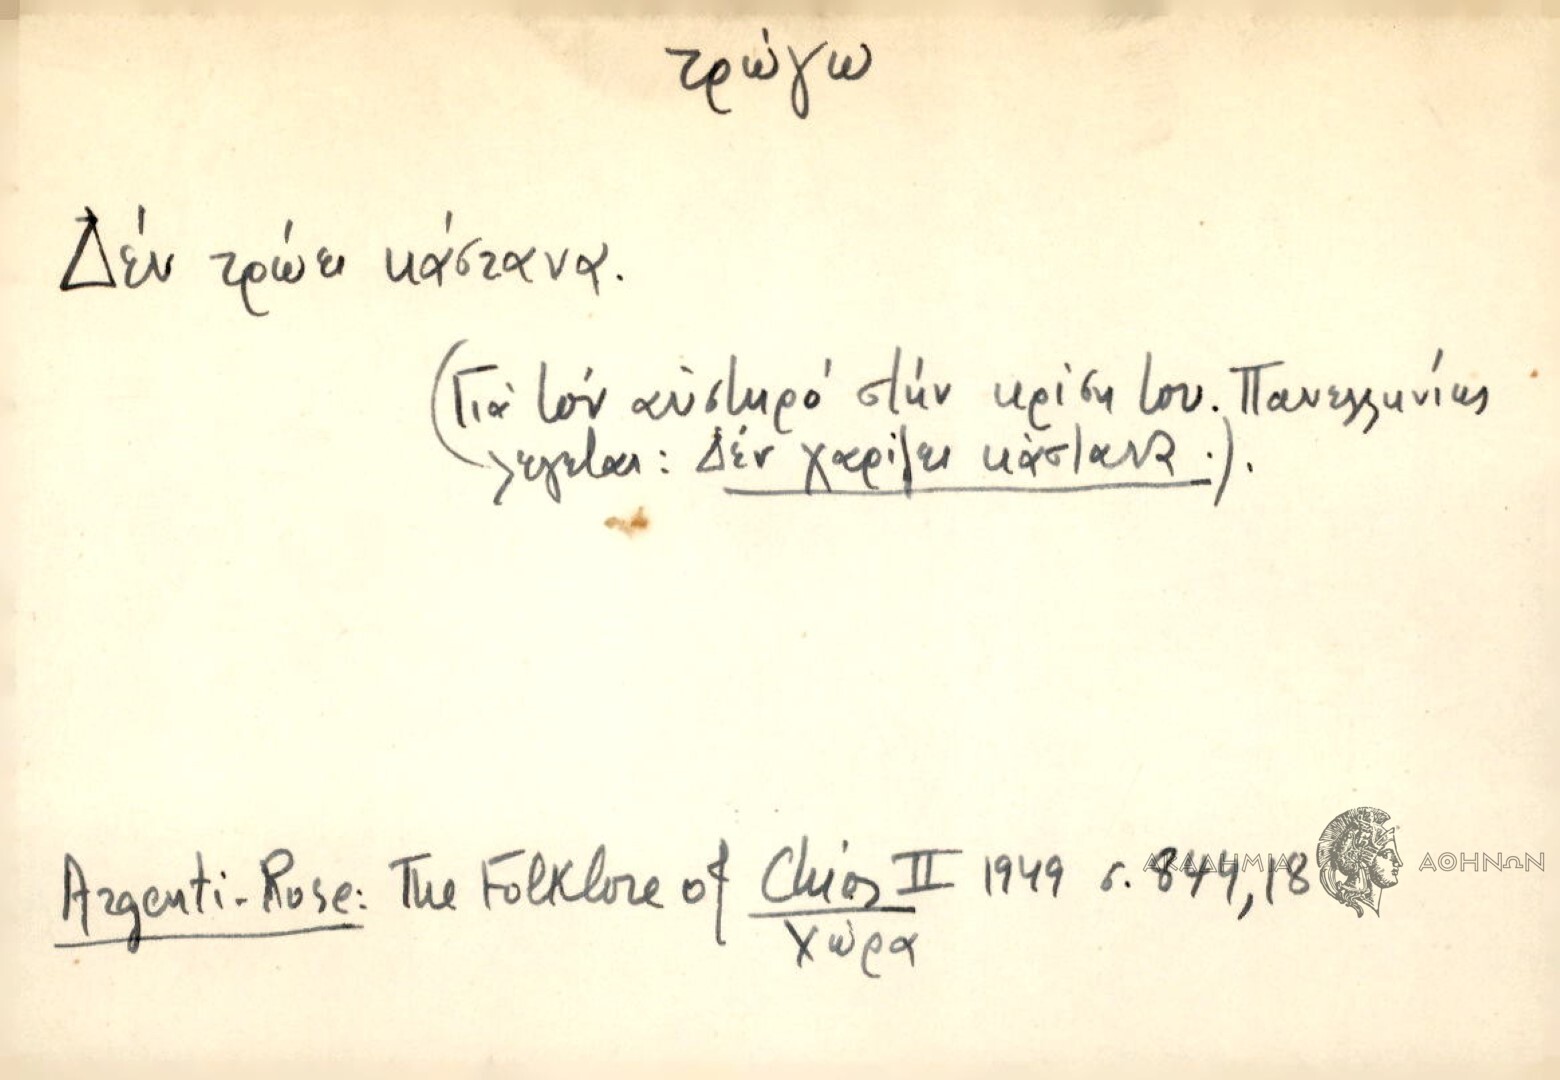 τρώγω
Δέν τρώει κάστανα.
(Γιά τόν αὐστηρό στήν κρίση του. Πανελληνίως
λέγεται: Δέν χαρίζει κάστανα.).
Argenti-Rose: The Folklore of Chios II 1949 σ. 844,18
Χώρα
ΑΚΑΔΗΜΙΑ ΑΘΗΝΩΝ